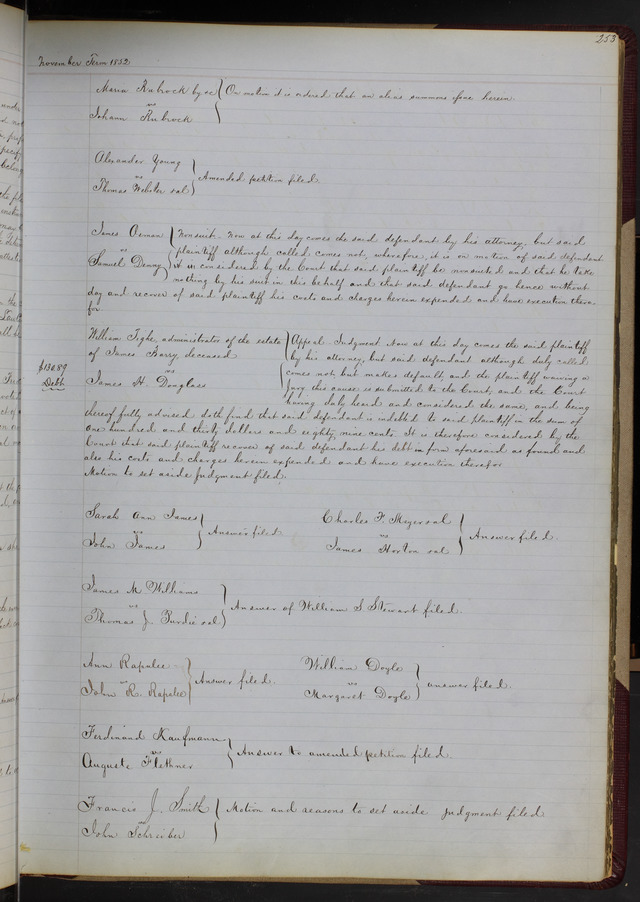 253
November Term 1852
Maria Rubrock by &c } On motion it is ordered that an alias summons issue herein.
vs
Johann Rubrock
Alexander Young
vs } Amended petition filed.
Thomas Webster &al
James Osman } Nonsuit. Now at this day comes the said defendant by his attorney, but said
plaintiff although called comes not, wherefore, it is on motion of said defendant
vs
Samuel Denny } it is considered by the Court that said plaintiff be nonsuited and that he take
nothing by his suit in this behalf and that said defendant go hence without
day and recover of said plaintiff his costs and charges herein expended and have execution there
for
William Tighe, administrator of the estate } Appeal. Judgment. Now at this day comes the said plaintiff
of James Barry, deceased } by his attorney, but said defendant although duly called
$130.89
vs } comes not but makes default, and the plaintiff waiving a
Debt
James H. Douglass } Jury this cause is submitted to the Court, and the Court
having duly heard and considered the same, and being
thereof fully advised doth find that said defendant is indebted to said plaintiff in the sum of
One hundred and thirty dollars and eighty nine cents. It is therefore considered by the
Court that said plaintiff recover of said defendant his debt in form aforesaid as found and
also his costs and charges herein expended and have execution therefor.
Motion to set aside Judgment filed.
Sarah Ann James
vs } Answer filed
John James
Charles F. Meyer &al
vs } Answer filed.
James Horton &al
James M Williams
vs } Answer of William S Stewart filed.
Thomas J. Purdie &al
Ann Rapalee
vs } Answer filed.
John R. Rapalee
William Doyle
vs } answer filed.
Margaret Doyle
Ferdinand Kaufmann
vs } Answer to amended petition filed.
Auguste Flethner
Francis J. Smith } Motion and reasons to set aside judgment filed
vs
John Schreiber